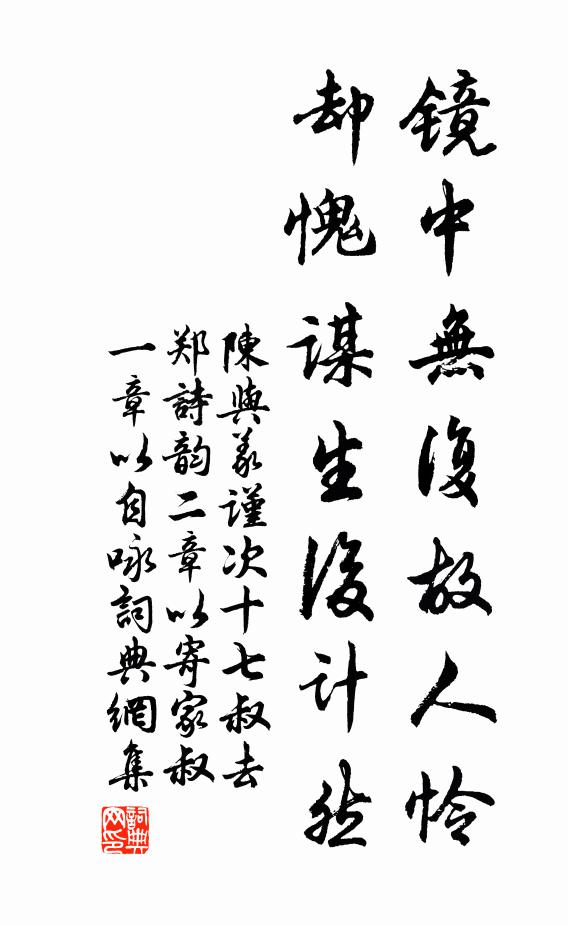 镜中無復故人怜
却愧謀生後计然
陳與義謹次十七叔去
郑詩韵二章以寄家叔
一章以自咏詞典網集
詞典
网印